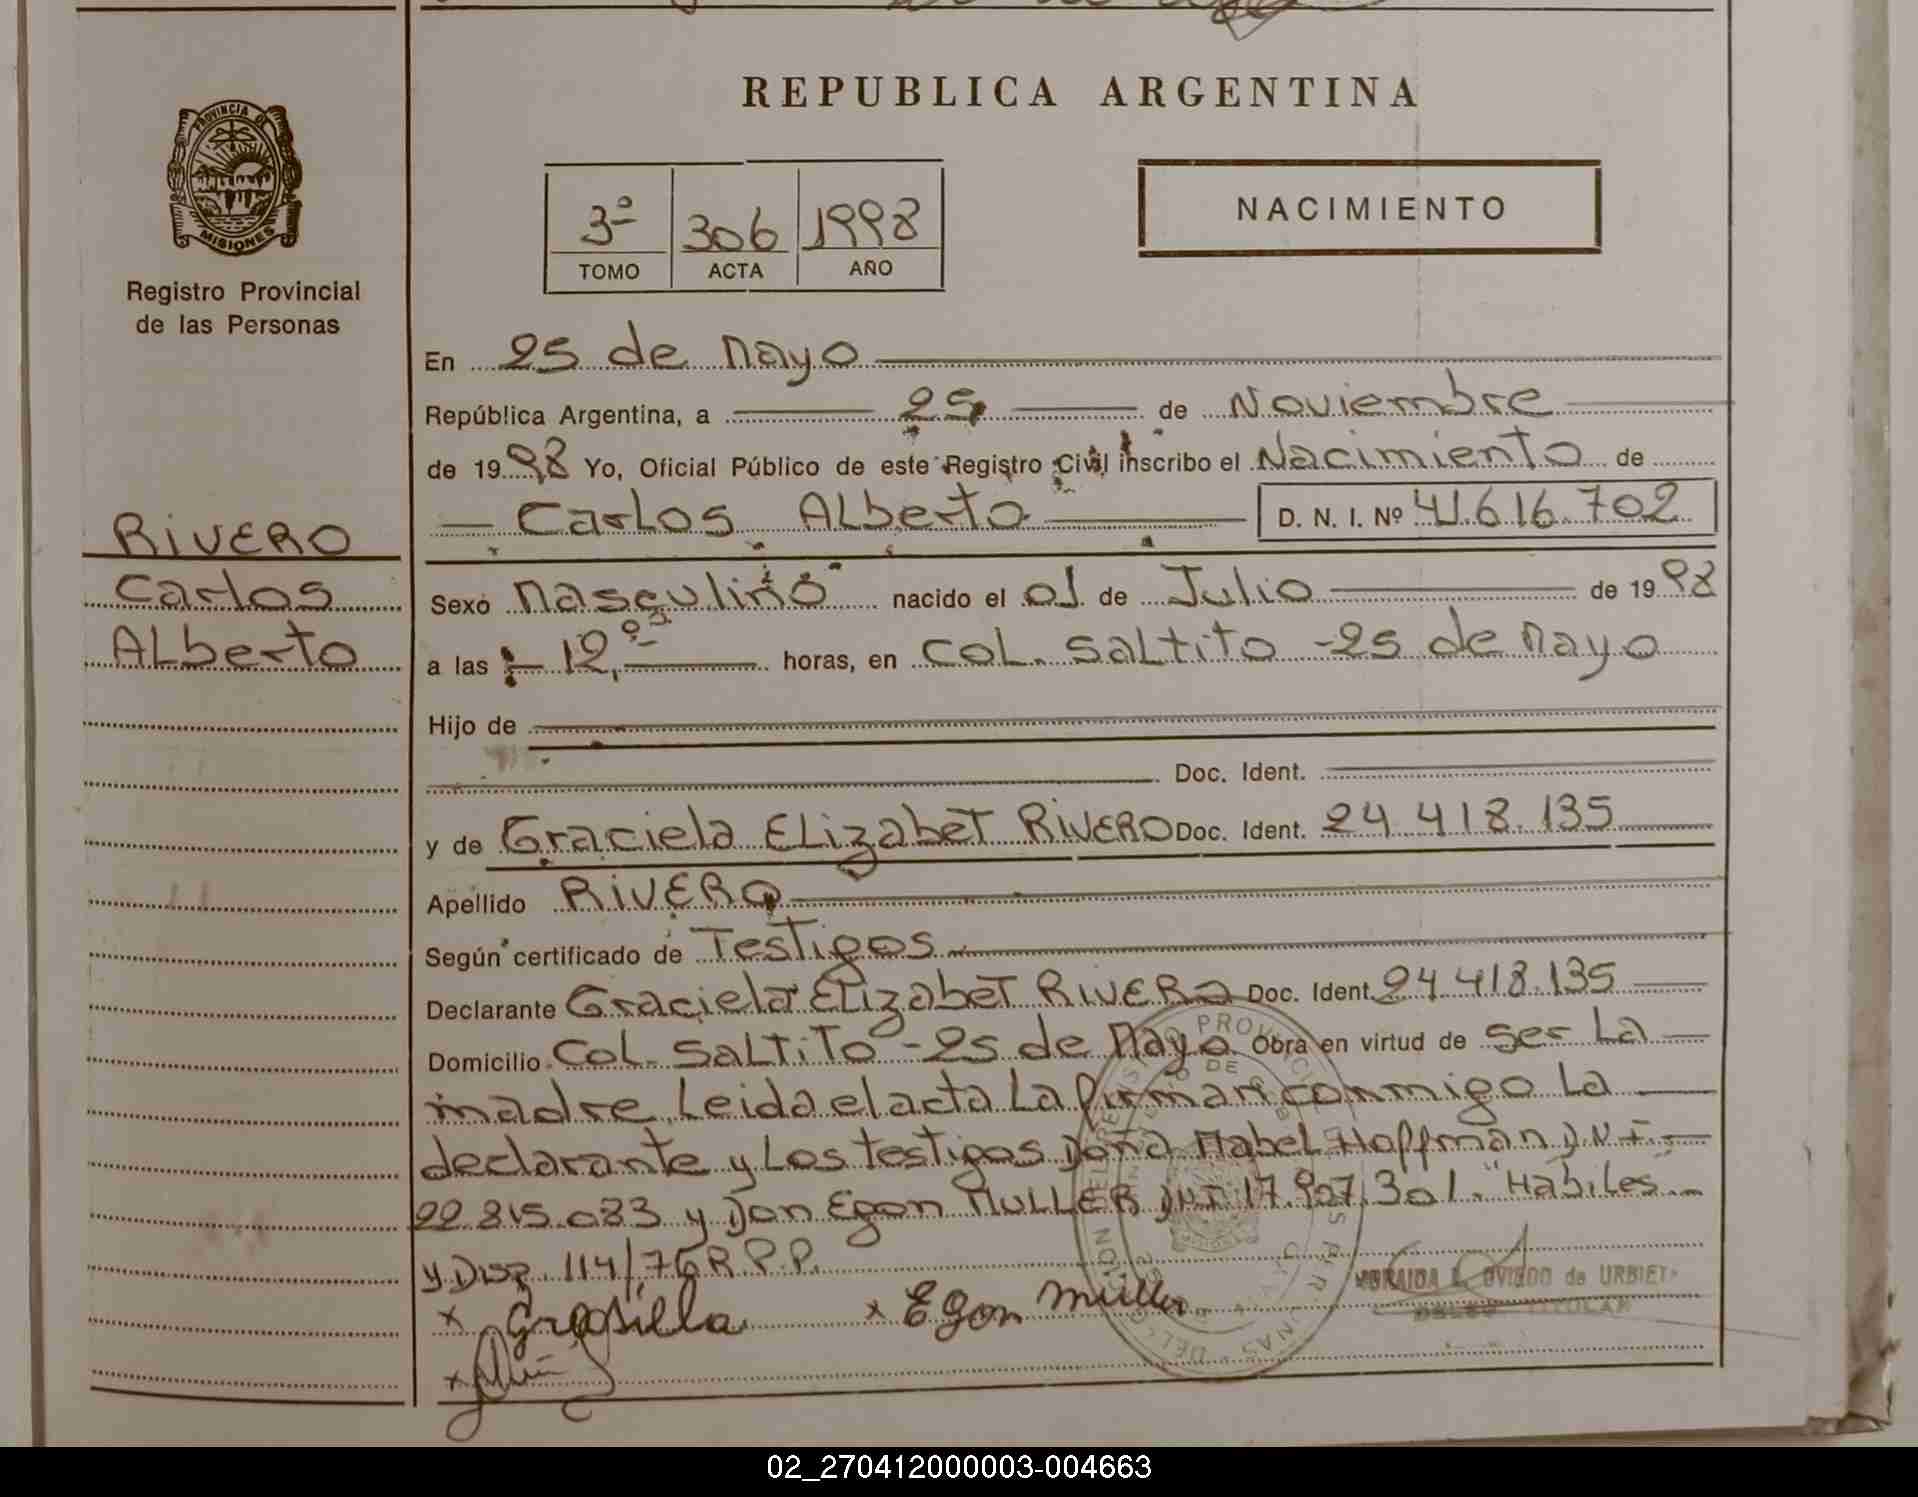 REPUBLICA ARGENTINA
PROVINCIA DE
MISIONES
Registro Provincial
de las Personas
3º 306 1998
TOMO ACTA AÑO
NACIMIENTO
En 25 de Mayo
República Argentina, a 25 de Noviembre
de 1998 Yo, Oficial Público de este Registro Civil inscribo el Nacimiento de
Carlos Alberto D. N. I. Nº 41.616.702
RIVERO
Carlos
Alberto
Sexo Masculino nacido el 01 de Julio de 1998
a las 12, horas, en Col. Saltito - 25 de Mayo
Hijo de
Doc. Ident.
y de Graciela Elizabet RIVERO Doc. Ident. 24.418.135
Apellido RIVERO
Según certificado de Testigos
Declarante Graciela Elizabet RIVERO Doc. Ident. 24.418.135
Domicilio Col. Saltito - 25 de Mayo Obra en virtud de ser La
madre Leida el acta La firman conmigo La
declarante y Los testigos Doña Mabel Hoffman D.N.I.
22.815.083 y Don Egon MULLER DNI 17.907.301. "Habiles
y Disp. 114/76 R.P.P.
x Graciela x Egon Müller
x
OVIEDO de URBIETA
TITULAR
02_270412000003-004663